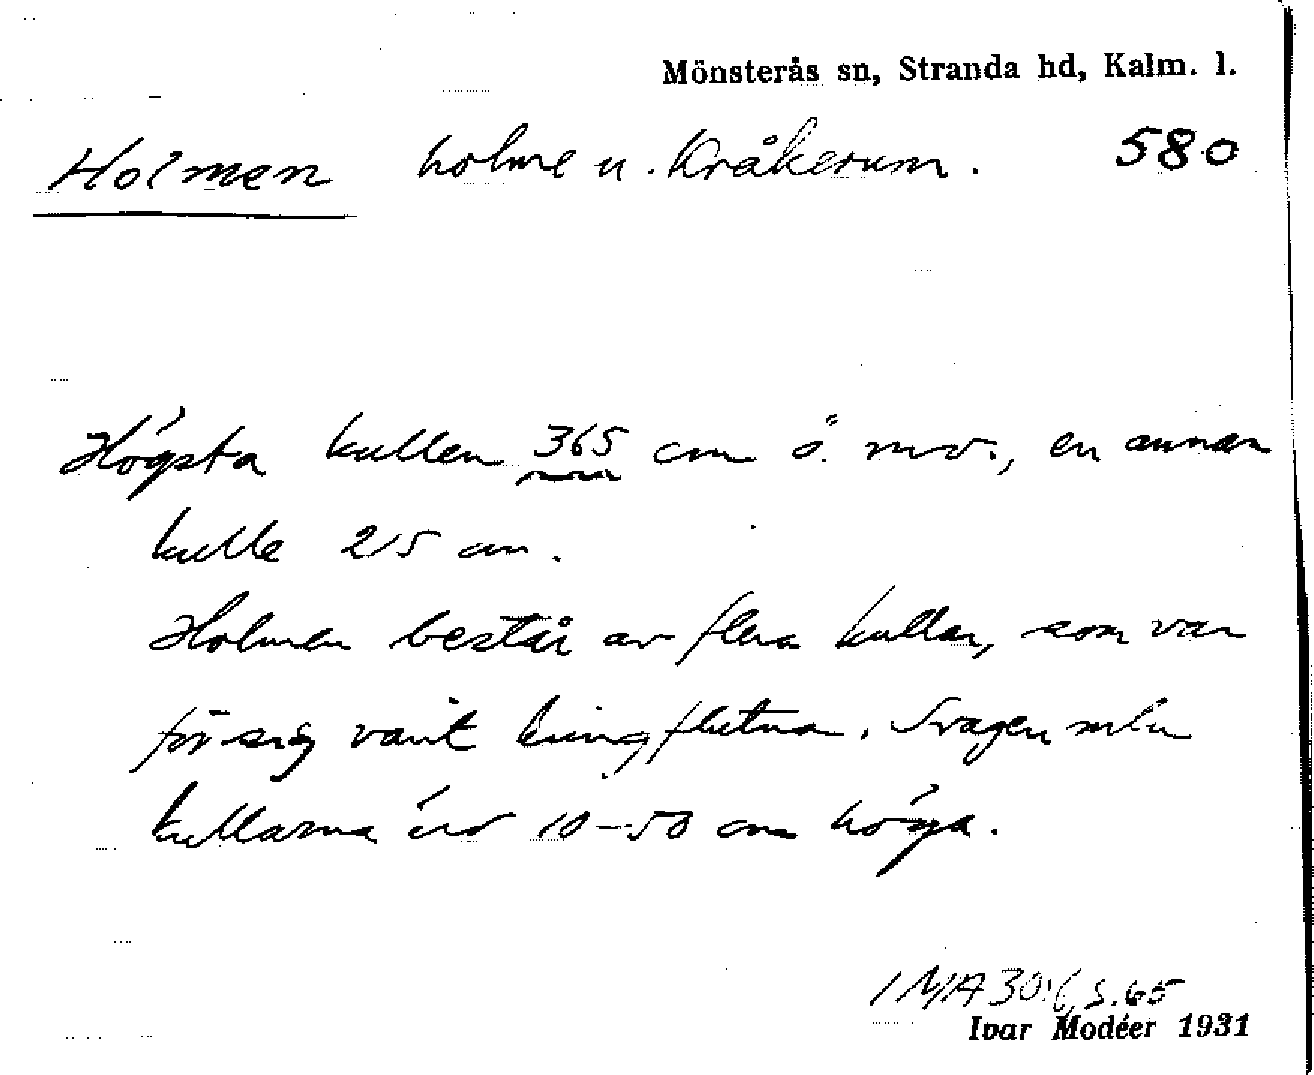 Mönsterås sn, Stranda hd, Kalm. l.
Holmen holme u. Kråkerum. 580
Högsta kullen 365 cm ö. mv., en annan
kulle 215 cm.
Holmen består av flera kullar, som var
för sig varit kringflutna. Svagen mln
kullarna äro 10-50 cm höga.
IMA 30:6, s. 65
Ivar Modéer 1931